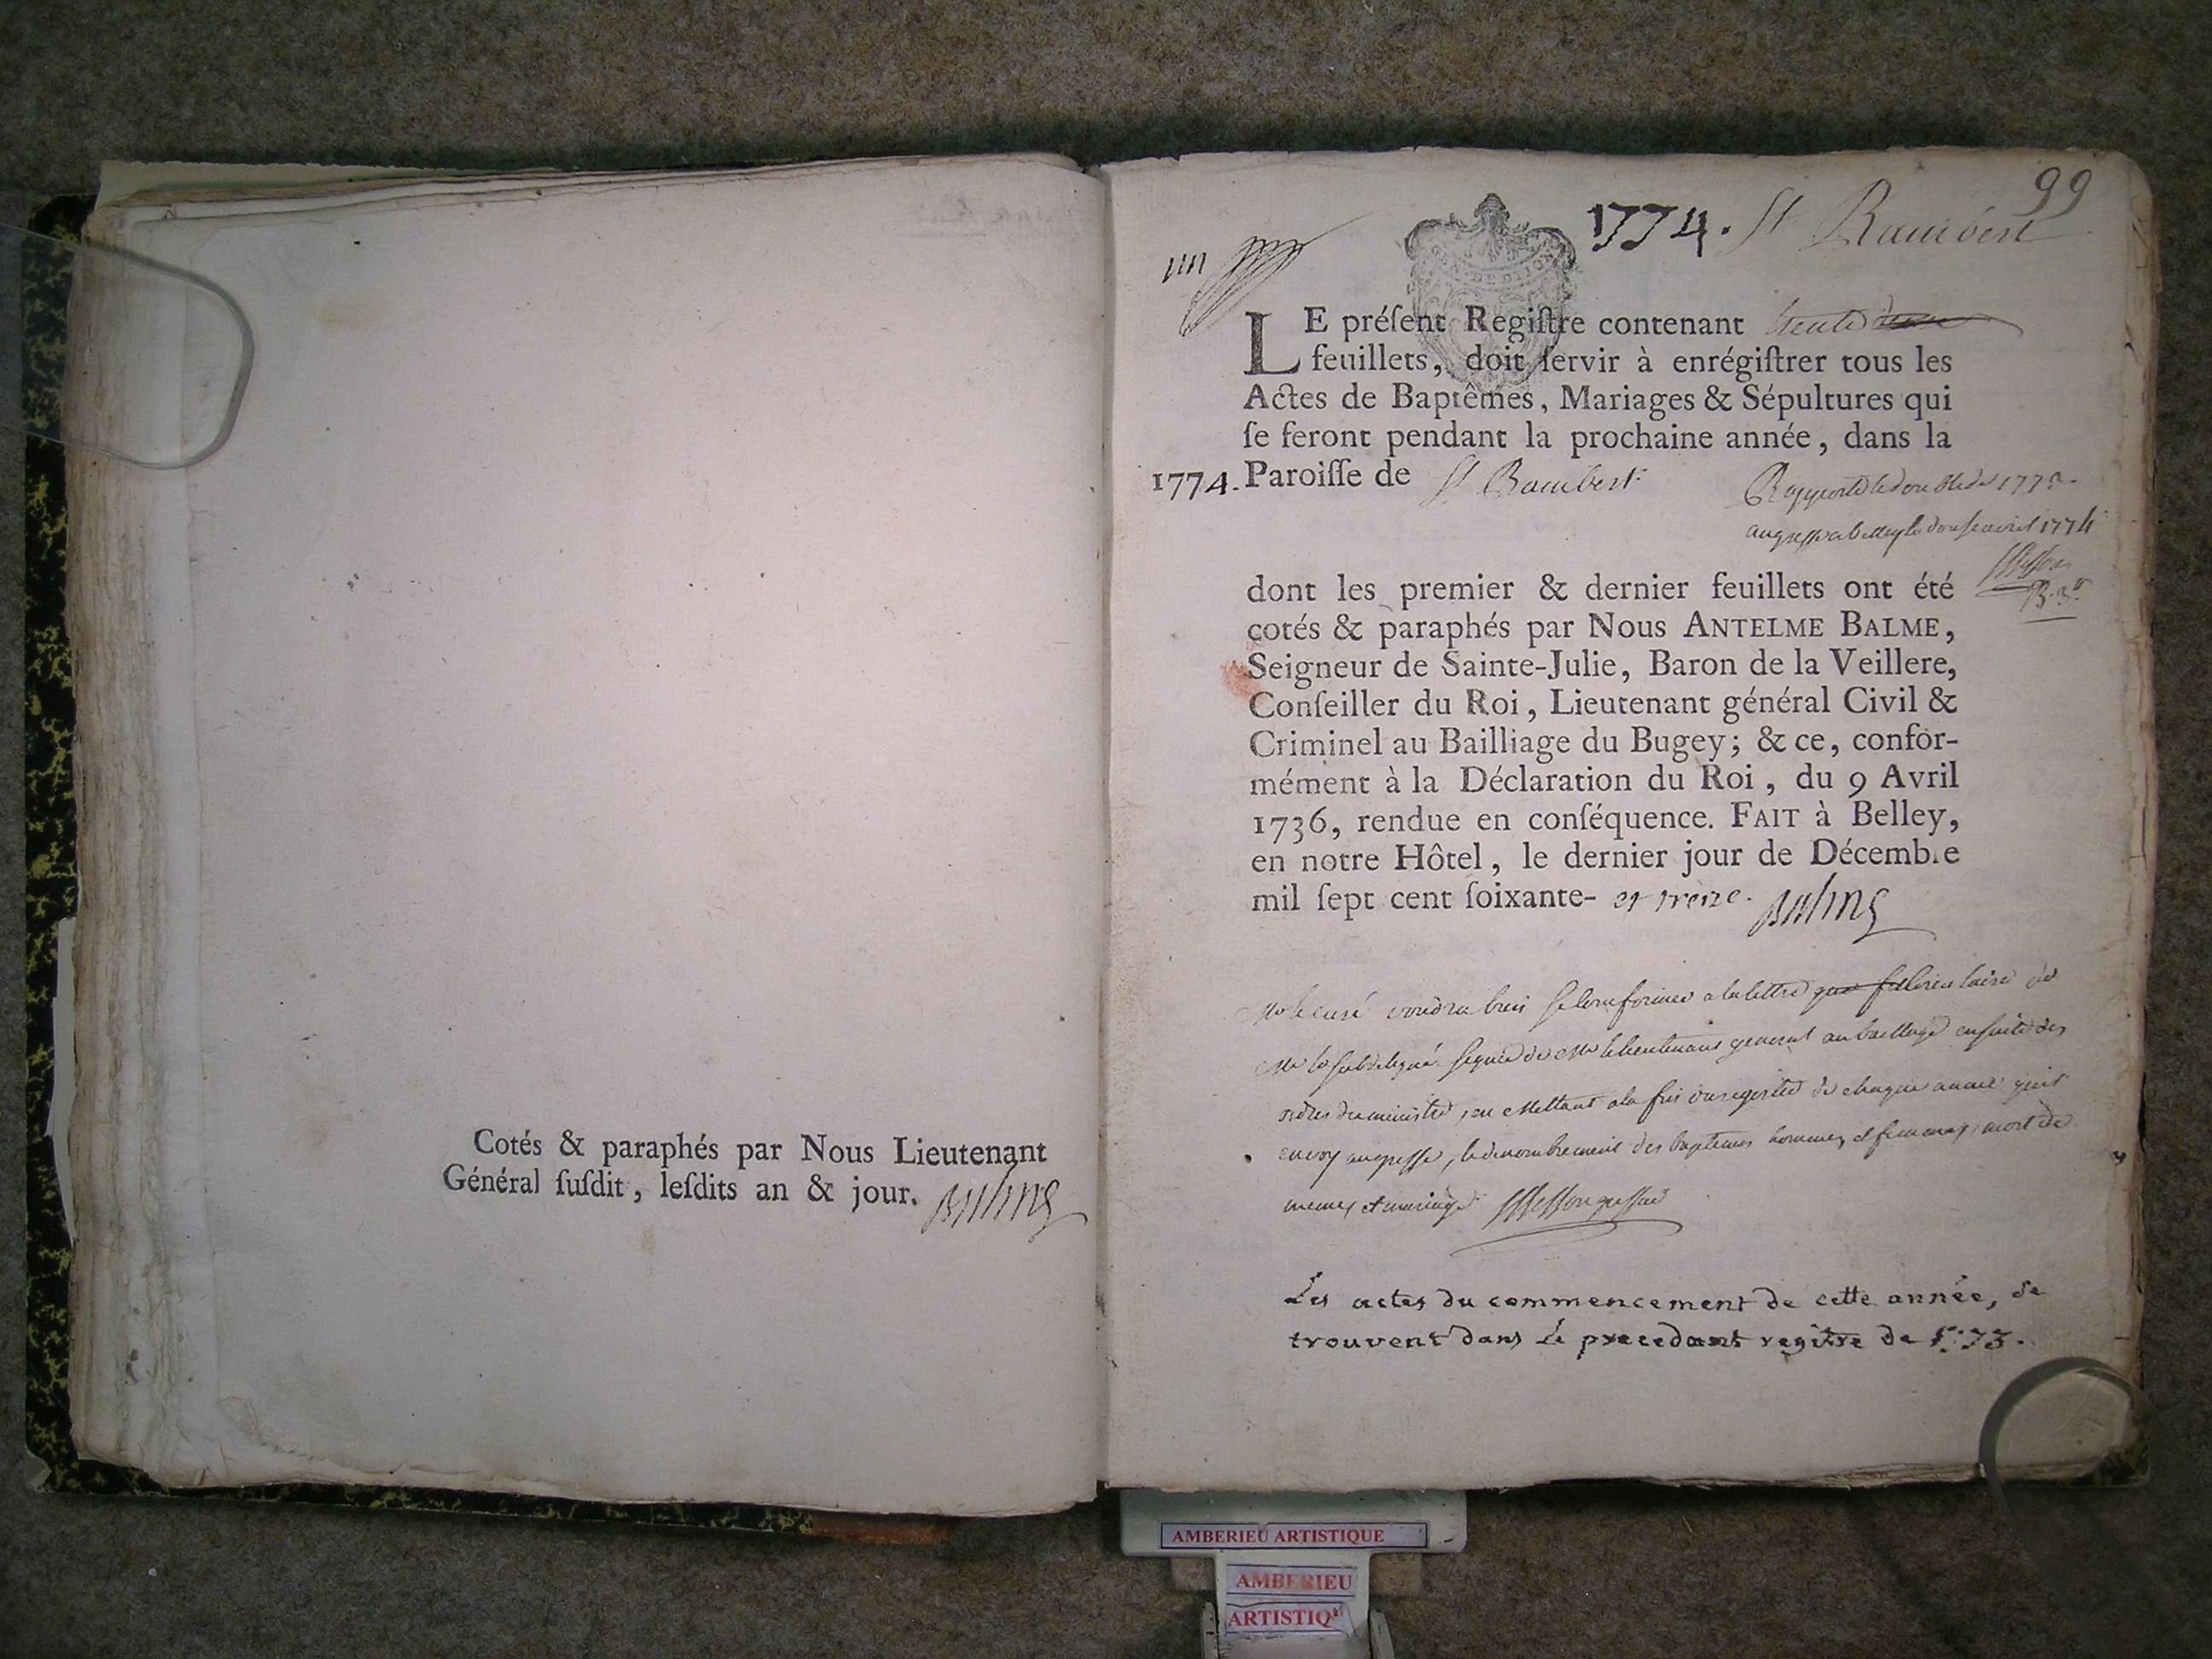 Cotés & paraphés par Nous Lieutenant
Général ſuſdit, leſdits an & jour. Balme
99
1774. St Rambert
un
GEN. DE DIJON
LE préſent Regiſtre contenant trente
feuillets, doit ſervir à enrégiſtrer tous les
Actes de Baptêmes, Mariages & Sépultures qui
ſe feront pendant la prochaine année, dans la
1774. Paroiſſe de St Rambert
Rapporté le double de 1773.
au greffe a belley le douſe avril 1774
dont les premier & dernier feuillets ont été
cotés & paraphés par Nous ANTELME BALME,
Seigneur de Sainte-Julie, Baron de la Veillere,
Conſeiller du Roi, Lieutenant général Civil &
Criminel au Bailliage du Bugey; & ce, confor-
mément à la Déclaration du Roi, du 9 Avril
1736, rendue en conſéquence. FAIT à Belley,
en notre Hôtel, le dernier jour de Décembre
mil ſept cent ſoixante- et treize. Balme
Mr le curé voudra bien ſe conformer a la lettre circulaire de
Mr le ſubdelegué ſignée de Mr le lieutenant general au bailliage enſuite des
ordres du miniſtre, en mettant a la fin du regiſtre de chaque année qu'il
envoy au greffe, le denombrement des baptemes hommes et femmes, mort de
memes et mariage
Les actes du commencement de cette année, se
trouvent dans le precedant regitre de 1773.
AMBERIEU ARTISTIQUE
AMBERIEU
ARTISTIQ